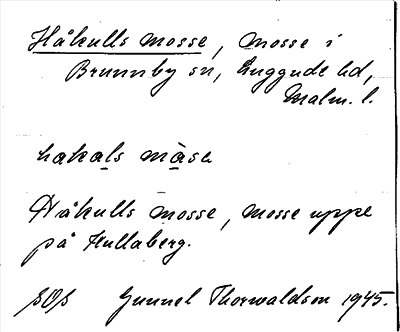 Håkulls mosse, mosse i
Brunnby sn, Luggude hd,
Malm. l.
hakals måse
Håkulls mosse, mosse uppe
på Kullaberg.
SOS Gunnel Thorwaldson 1945.